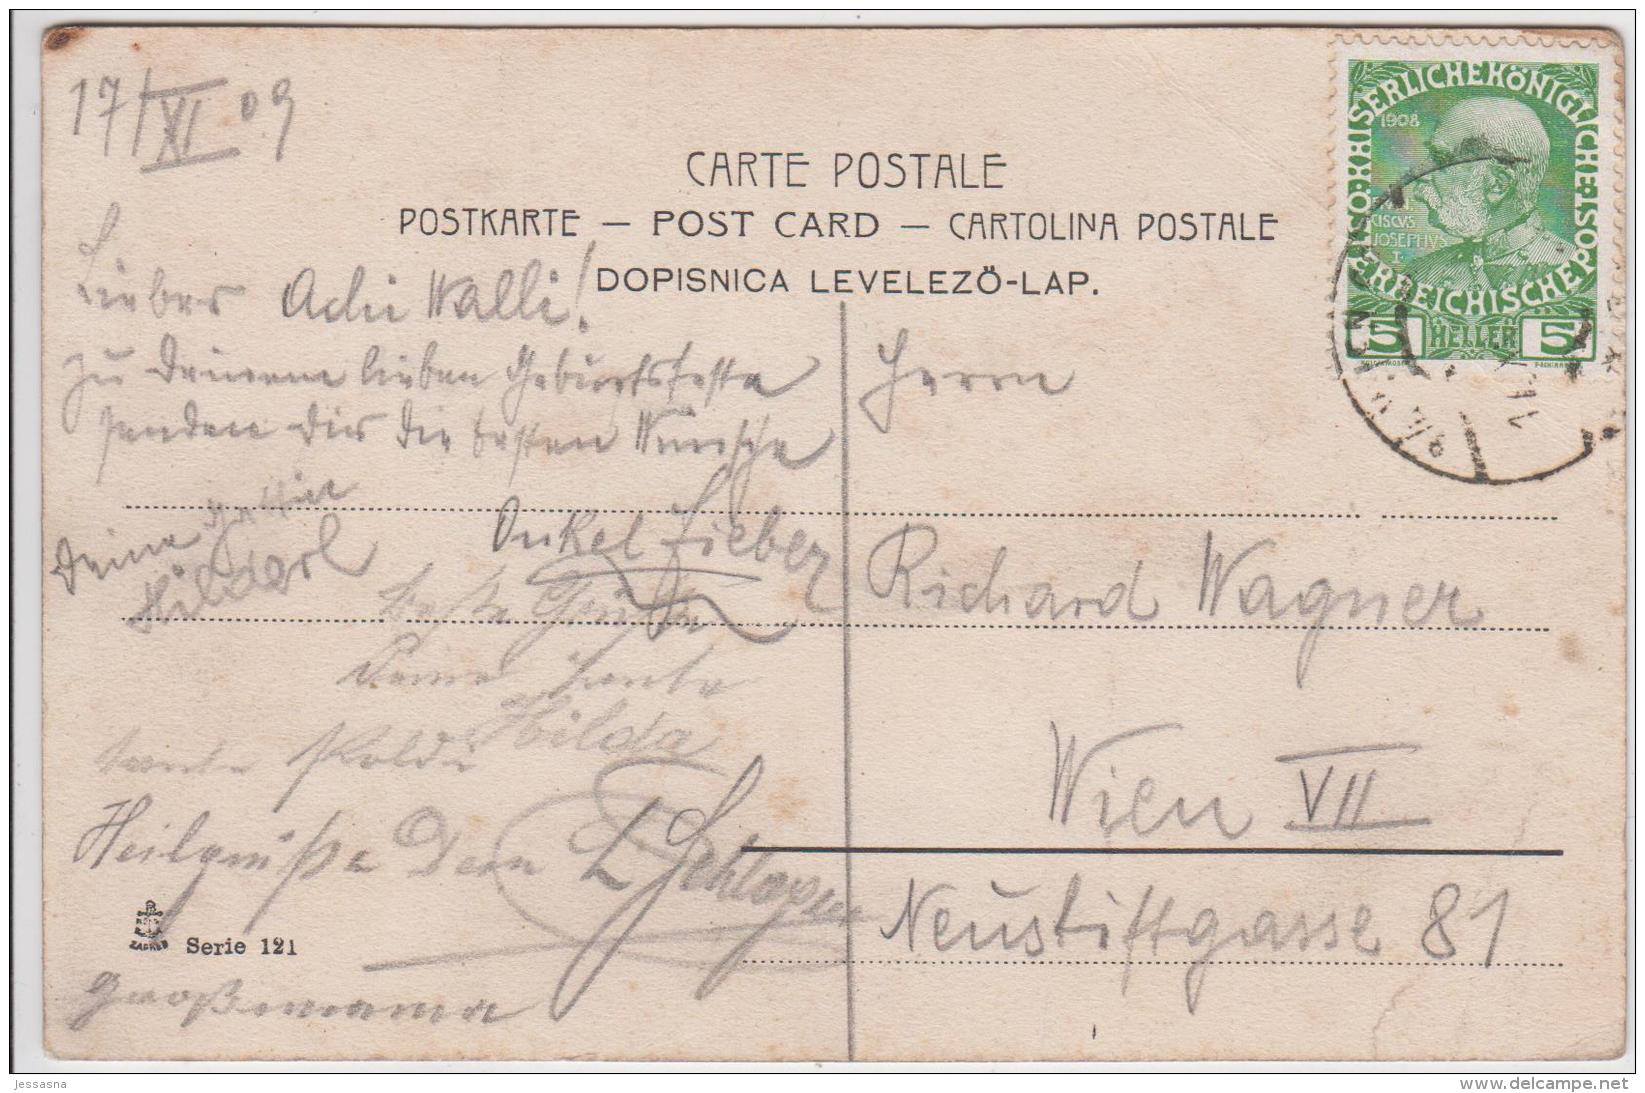 17/XI 09
CARTE POSTALE
POSTKARTE – POST CARD – CARTOLINA POSTALE
DOPISNICA LEVELEZÖ-LAP.
KAISERLICHE KÖNIGLICHE
ÖSTERREICHISCHE POST
1908
CISCVS
JOSEPHVS
I.
5 HELLER 5
Lieber Walli!
Zu Deinem lieben Geburtsfeste
senden Dir die besten Wünsche
Deine
Onkel Fieber
beste Grüße
Deine Tante
Hilda
Tante Poldi
Großmama
Herrn
Richard Wagner
Wien VII
Neustiftgasse 81
ZAGREB
Serie 121
Jessasna
www.delcampe.net